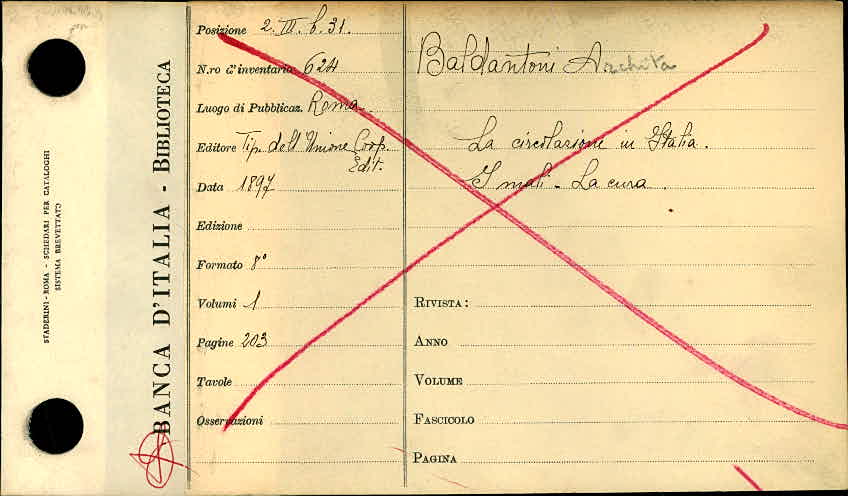 STADERINI - ROMA - SCHEDARI PER CATALOGHI
SISTEMA BREVETTATO
BANCA D'ITALIA - BIBLIOTECA
Posizione 2. III. b. 31.
N.ro d'inventario 624
Luogo di Pubblicaz. Roma
Editore Tip. dell'Unione Coop.
Edit.
Data 1897
Edizione
Formato 8°
Volumi 1
Pagine 203
Tavole
Osservazioni
Baldantoni Archita
La circolazione in Italia.
I mali - La cura.
RIVISTA:
ANNO
VOLUME
FASCICOLO
PAGINA